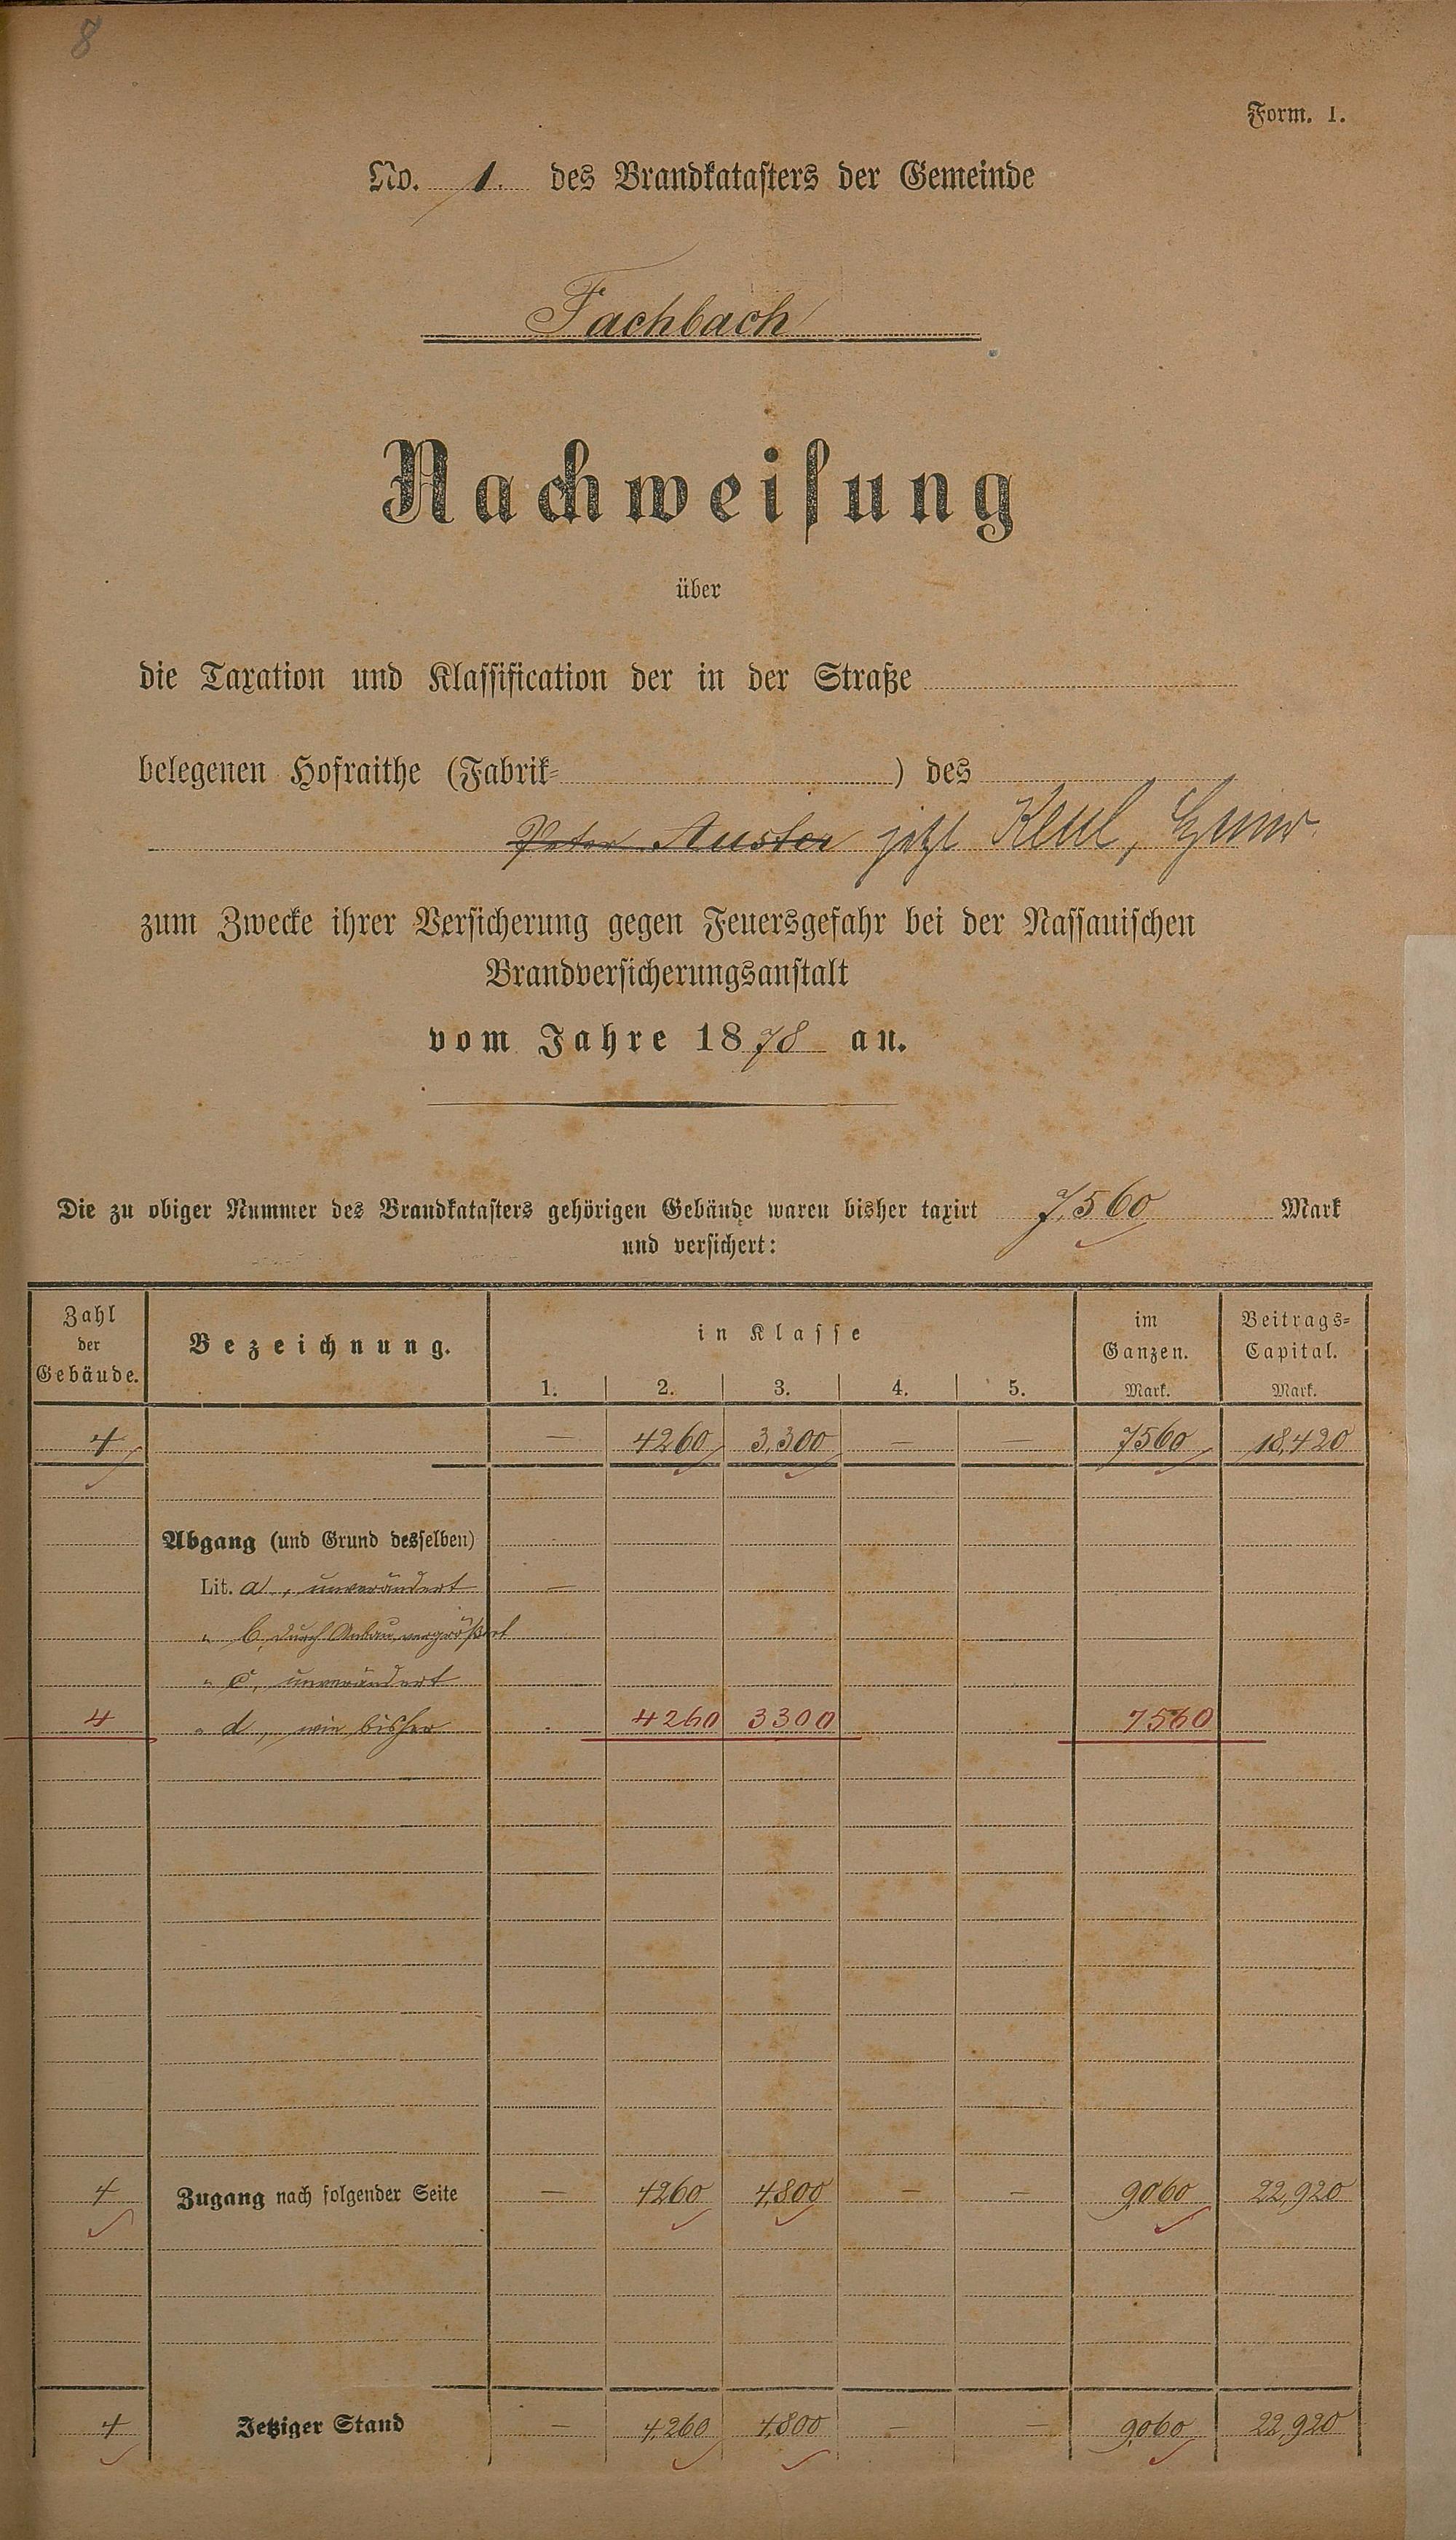 8
Form. 1.
No. 1. des Brandkatasters der Gemeinde
Fachbach
Nachweisung
über
die Taxation und Klassification der in der Straße
belegenen Hofraithe (Fabrik- ) des
Peter Auster jetzt Keul,
zum Zwecke ihrer Versicherung gegen Feuersgefahr bei der Nassauischen
Brandversicherungsanstalt
vom Jahre 1878 an.
Die zu obiger Nummer des Brandkatasters gehörigen Gebäude waren bisher taxirt 7,560 Mark
und versichert:
Zahl der Gebäude. Bezeichnung. in Klasse im Ganzen. Beitrags-Capital.
1. 2. 3. 4. 5. Mark. Mark.
4 — 4260 3,300 — — 7560 18,420
Abgang (und Grund desselben)
Lit. a, unverändert —
" b, durch Anbau vergrößert
" c, unverändert
4 " d, wie bisher 4260 3300 7560
4 Zugang nach folgender Seite — 4260 4,800 — — 9,060 22,920
4 Jetziger Stand — 4,260 4,800 — — 9,060 22,920